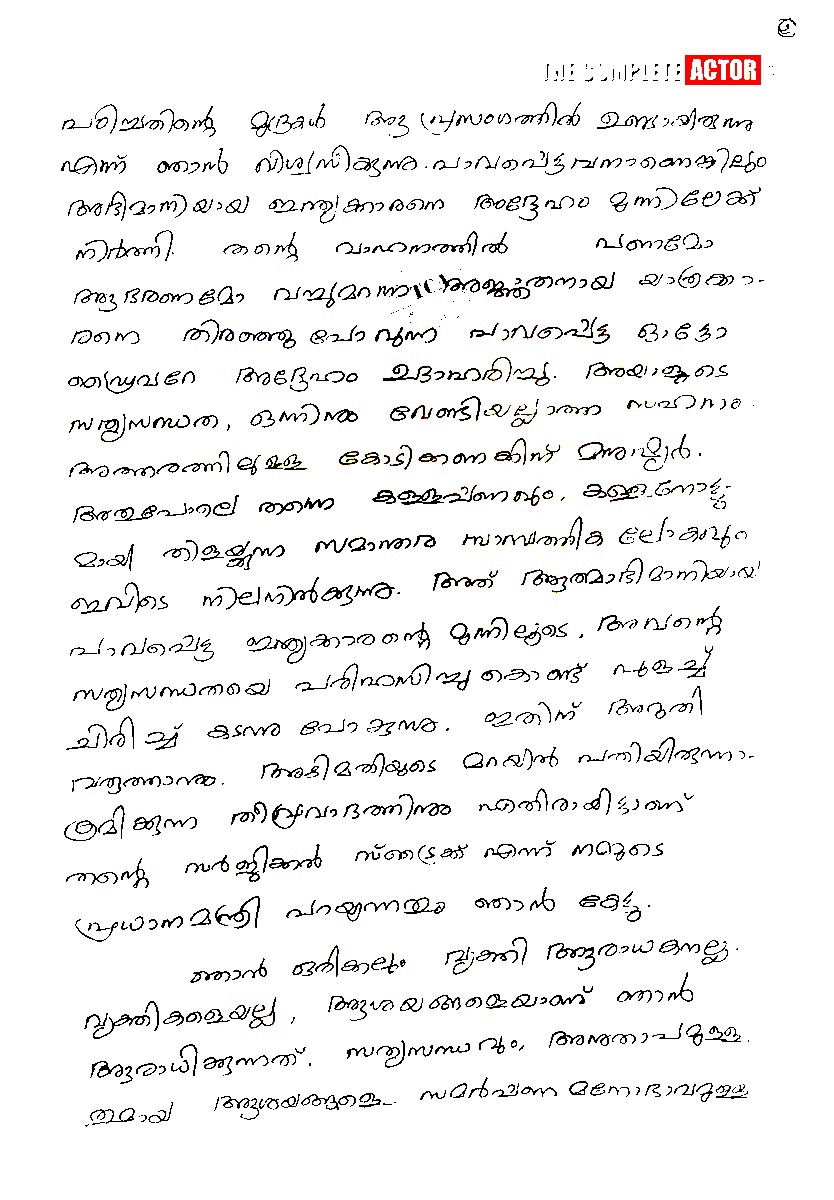 THE COMPLETE ACTOR
പഠിച്ചതിന്റെ മുദ്രകൾ ആ പ്രസംഗത്തിൽ ഉണ്ടായിരുന്നു
എന്ന് ഞാൻ വിശ്വസിക്കുന്നു. പാവപ്പെട്ടവനാണെങ്കിലും
അഭിമാനിയായ ഇന്ത്യക്കാരനെ അദ്ദേഹം മുന്നിലേക്ക്
നിർത്തി. തന്റെ വാഹനത്തിൽ പണമോ
ആഭരണമോ വച്ചുമറന്ന അജ്ഞാതനായ യാത്രക്കാ-
രനെ തിരഞ്ഞു പോവുന്ന പാവപ്പെട്ട ഓട്ടോ
ഡ്രൈവറേ അദ്ദേഹം ഉദാഹരിച്ചു. അയാളുടെ
സത്യസന്ധത, ഒന്നിനും വേണ്ടിയല്ലാത്ത സഹനം
അത്തരത്തിലുള്ള കോടിക്കണക്കിന് മനുഷ്യർ.
അതുപോലെ തന്നെ കള്ളപ്പണവും, കള്ളനോട്ടു-
മായി തിളയ്ക്കുന്ന സമാന്തര സാമ്പത്തിക ലോകവും
ഇവിടെ നിലനിൽക്കുന്നു. അത് ആത്മാഭിമാനിയായ
പാവപ്പെട്ട ഇന്ത്യക്കാരന്റെ മുന്നിലൂടെ, അവന്റെ
സത്യസന്ധതയെ പരിഹസിച്ചു കൊണ്ട് പുളച്ച്
ചിരിച്ച് കടന്നു പോകുന്നു. ഇതിന് അറുതി
വരുത്താനും. അഴിമതിയുടെ മറയിൽ പതിയിരുന്നാ-
ക്രമിക്കുന്ന തീവ്രവാദത്തിനും എതിരായിട്ടാണ്
തന്റെ സർജ്ജിക്കൽ സ്ട്രൈക്ക് എന്ന് നമ്മുടെ
പ്രധാനമന്ത്രി പറയുന്നതും ഞാൻ കേട്ടു.
ഞാൻ ഒരിക്കലും വ്യക്തി ആരാധകനല്ല.
വ്യക്തികളെയല്ല, ആശയങ്ങളെയാണ് ഞാൻ
ആരാധിക്കുന്നത്. സത്യസന്ധവും, അനുതാപമുള്ള
തുമായ ആശയങ്ങളെ സമർപ്പണ മനോഭാവമുള്ള